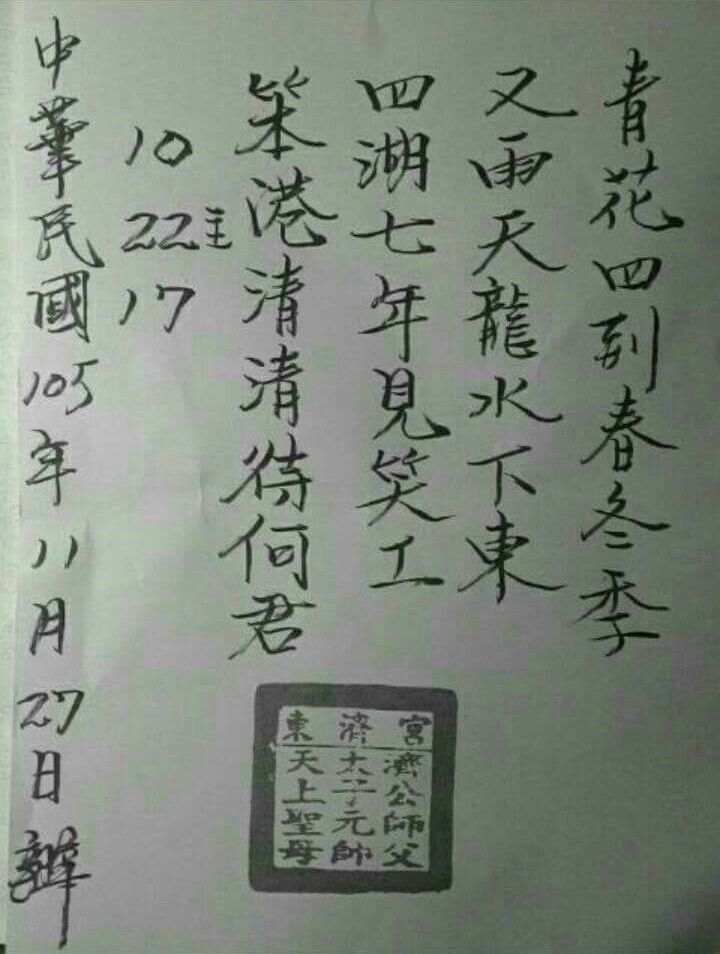 青花四列春冬季
又雨天龍水下東
四湖七年見笑工
笨港清清待何君
10
22主
17
中華民國105年11月27日辦
東濟宮
濟公師父
太子元帥
天上聖母